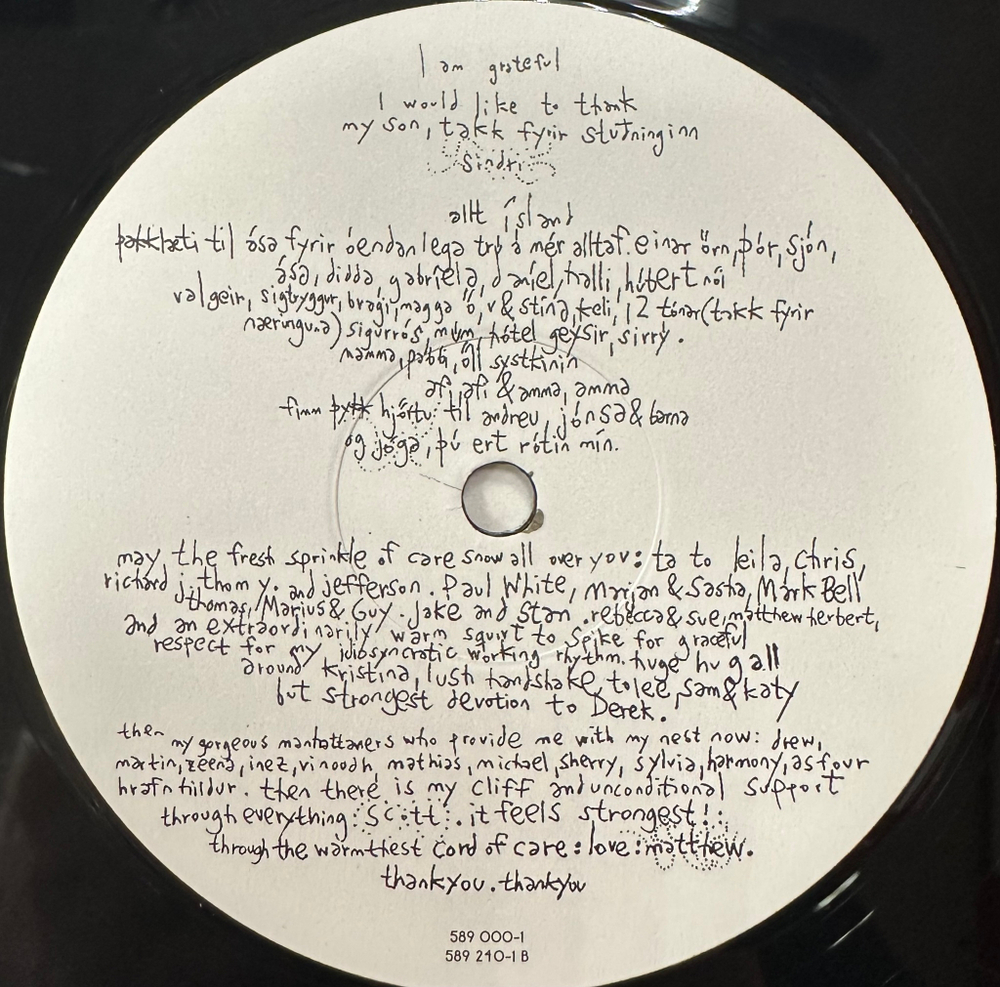 I am grateful
I would like to thank
my son, takk fyrir stuðninginn
Sindri
allt ísland
þakklæti til ása fyrir óendanlega trú á mér alltaf. einar örn, þór, sjón,
ása, didda, gabríela, daníel, halli, húbert nói
valgeir, sigtryggur, bragi, magga ö, v & stína, keli, 12 tónar (takk fyrir
næringuna) sigurrós, múm, hótel geysir, sirrý.
mamma, pabbi, öll systkinin
afi, afi & amma, amma
fimm þykk hjörtu: til andreu, jónsa & barna
og jóga, þú ert rótin mín.
may the fresh sprinkle of care snow all over you: ta to leila, chris,
richard j, thom y. and jefferson. Paul White, Marjan & Sasha, Mark Bell
thomas, Marius & Guy. Jake and Stan. rebecca & sue, matthew herbert,
and an extraordinarily warm squirt to Spike for graceful
respect for my idiosyncratic working rhythm. huge hug all
around kristina, lush handshake, to lee, sam & katy
but strongest devotion to Derek.
then my gorgeous manhattaners who provide me with my nest now: drew,
martin, zeena, inez, vinoodh, mathias, michael, sherry, sylvia, harmony, as four
hrafnhildur. then there is my cliff and unconditional support
through everything: Scott: it feels strongest!:
through the warmthest cord of care: love: matthew.
thankyou. thankyou
589 000-1
589 240-1 B